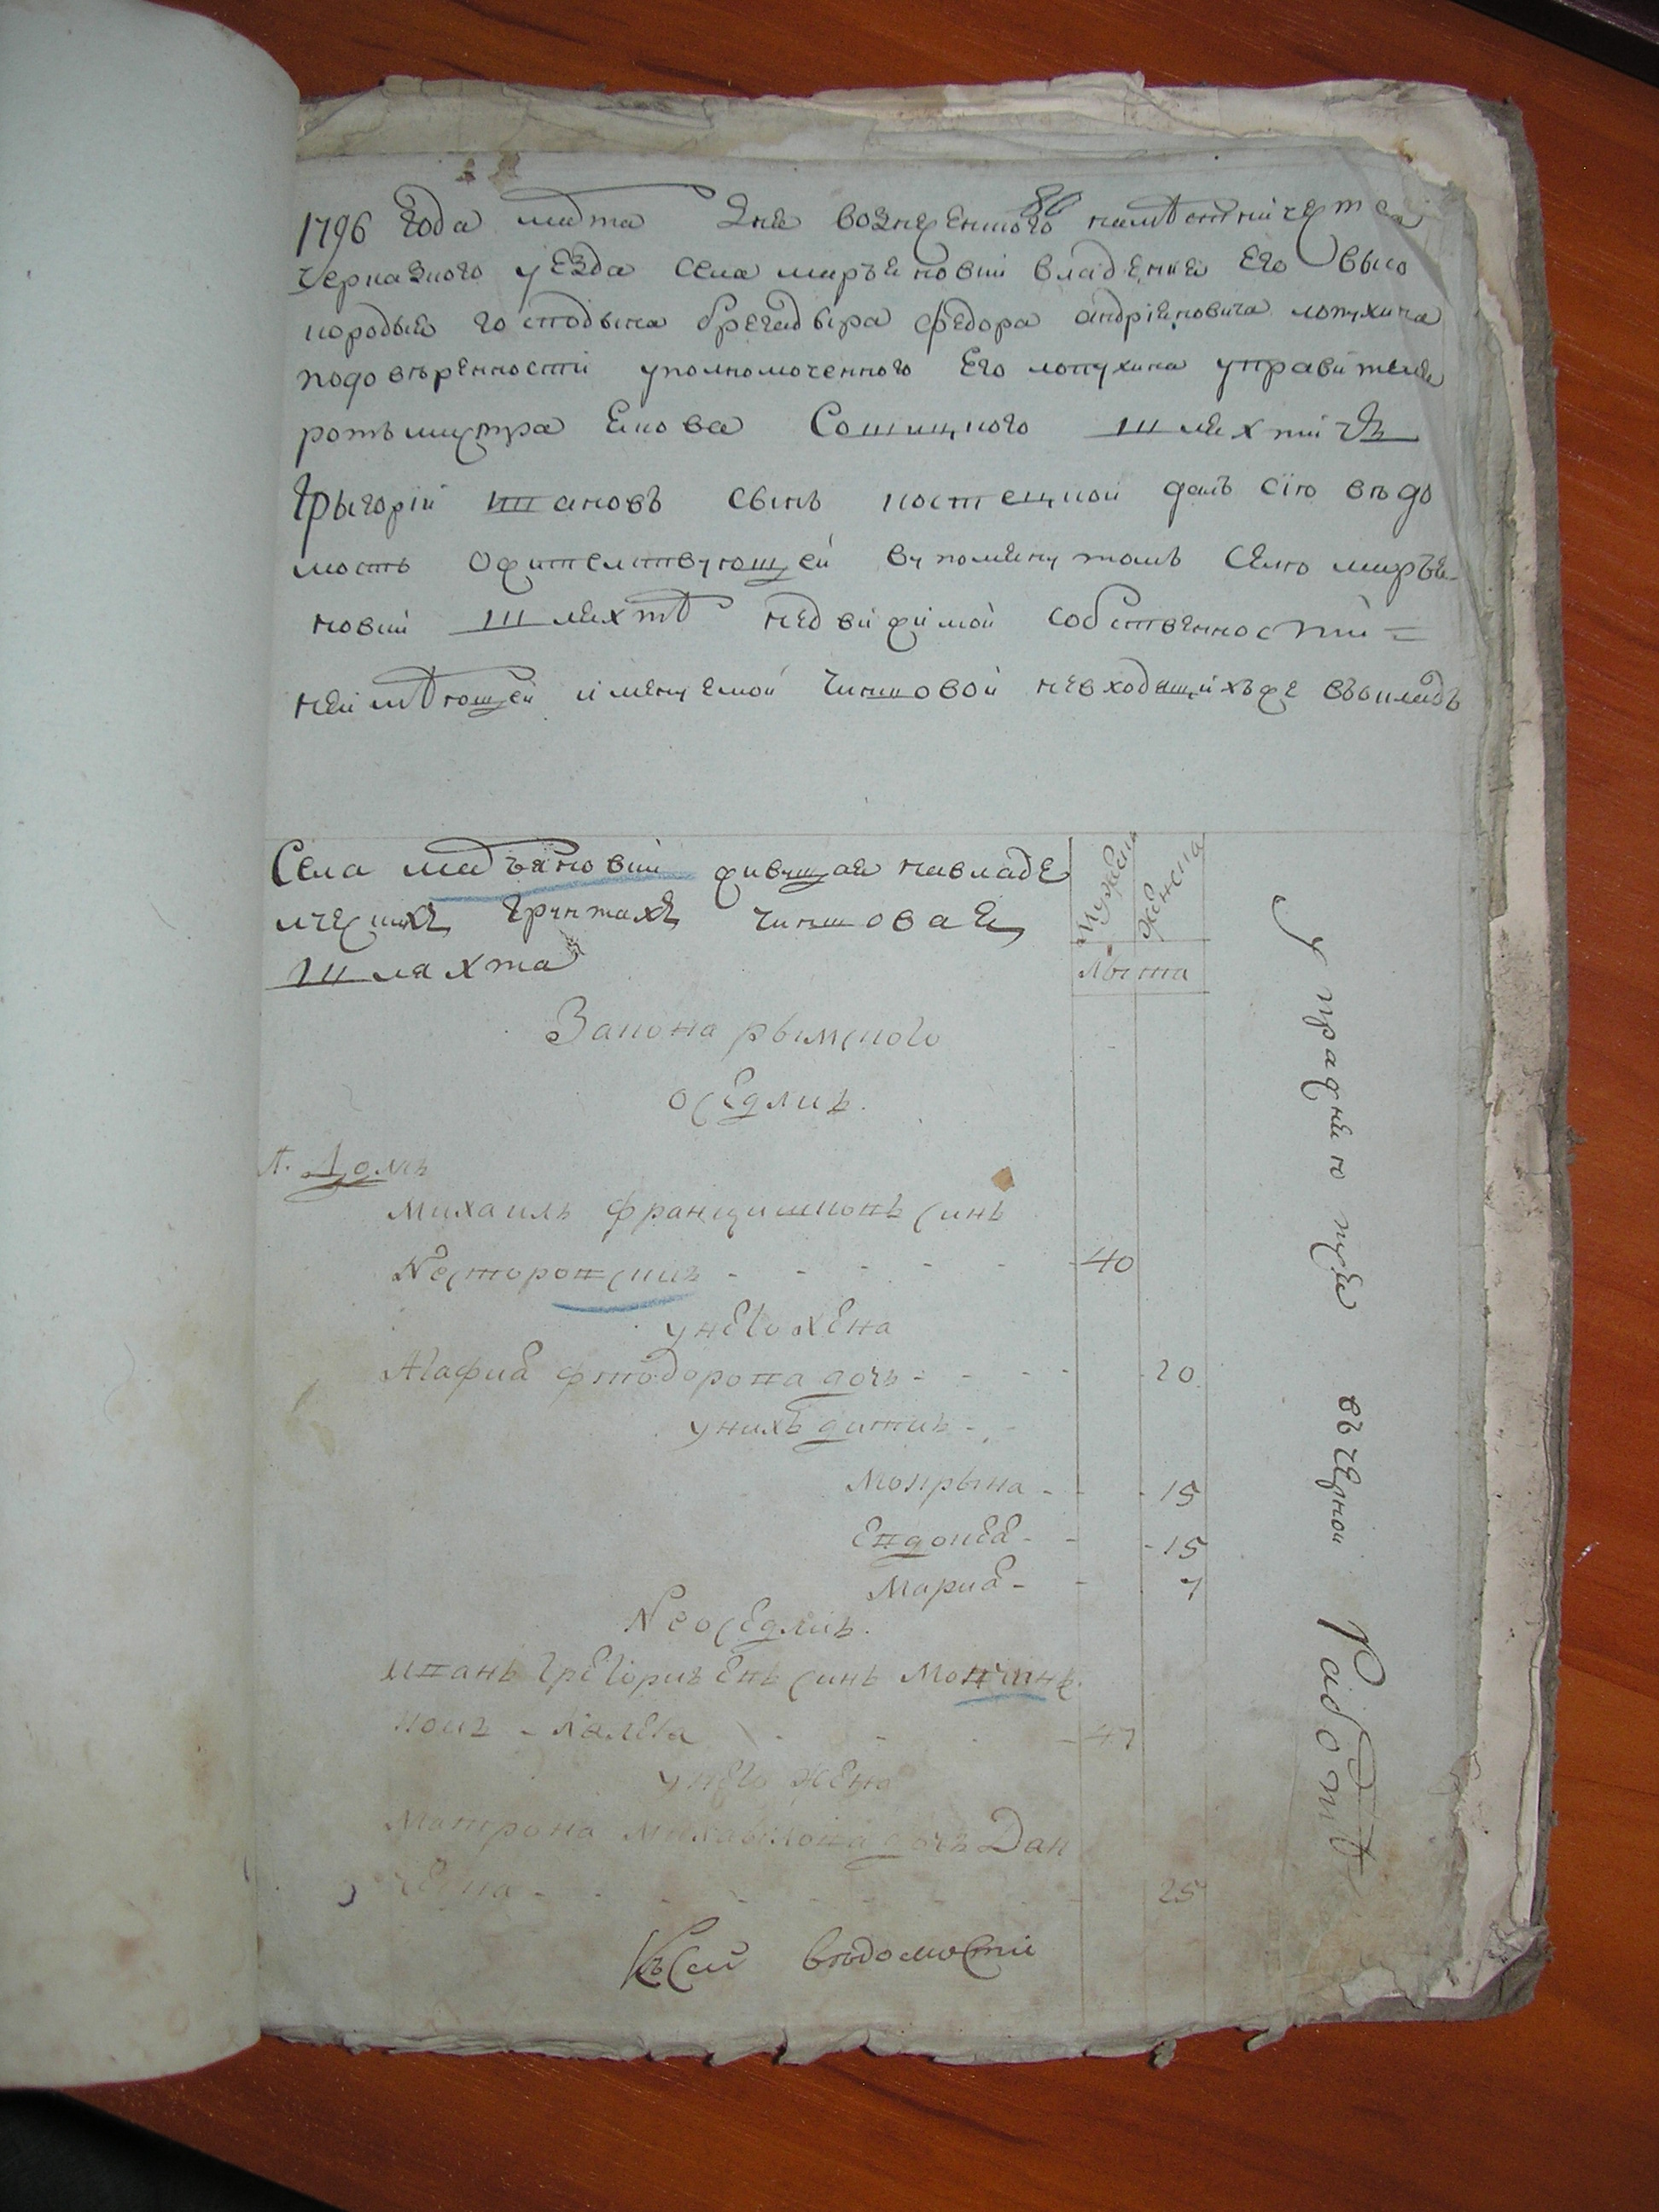 80
1796 года марта дня вознесенского наместничества
черкаского уезда села маръяновки владения его высо
короды͡я господына брегадыра федора андріяновича лопухина
подоверенности уполномоченного его лопухина управителя
ротьмистра якова шляхтичъ
Грыгорій ивановъ сынь костецкой далъ сію ведо
мость о жителствующей вупомянутомъ селе маръя
новки шляхте недвижимой собственности =
неимеющей именуемой чиншовой невходящихъже въокладъ
Села маръяновки живущая навладе
лческихъ грунтахъ чиншовая
шляхта
Мужеска
Женска
лѣта
Закона рымского
оседлихъ
1. Домъ
Михаилъ францишковъ синъ
Несторовский - - - - - - 40
унего жена
Агафия федорова дочъ - - - - 20
унихъ дитий - -
Мокрына - - - 15
Евдокея - - - 15
Мария - - 7
Неоседлихъ
иванъ грегориевъ синъ
калека - - - 47
унего жена
Матрона михайлова дочъ Дан
- - - - - - 25
Ксей ведомости
Упражняю тся въчерной Работе